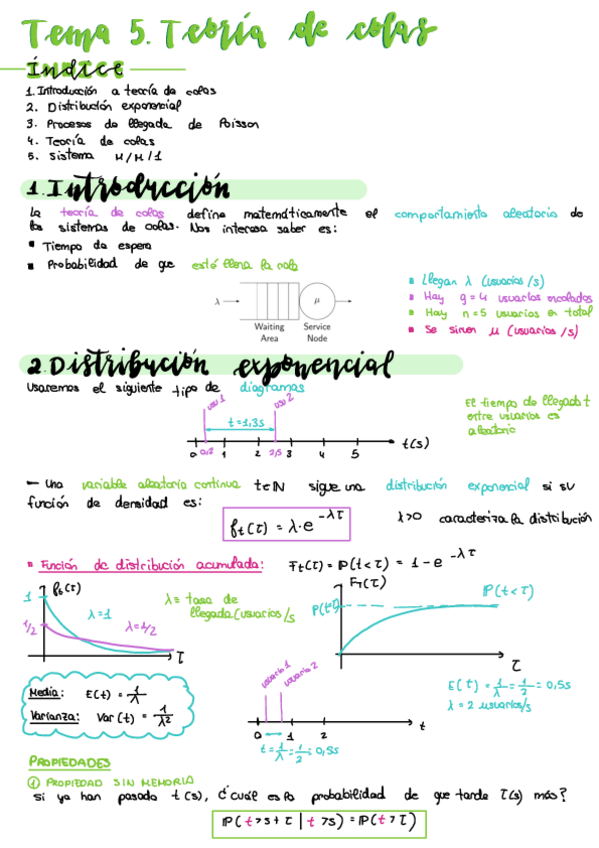 Tema 5. Teoría de colas
Índice
1. Introducción a teoría de colas
2. Distribución exponencial
3. Procesos de llegada de Poisson
4. Teoría de colas
5. Sistema M/M/1
1. Introducción
La teoría de colas define matemáticamente el comportamiento aleatorio de
los sistemas de colas. Nos interesa saber es:
▪ Tiempo de espera
▪ Probabilidad de que esté llena la cola
λ
μ
Waiting Area
Service Node
▪ Llegan λ (usuarios/s)
▪ Hay q=4 usuarios encolados
▪ Hay n=5 usuarios en total
▪ Se sirven μ (usuarios/s)
2. Distribución exponencial
Usaremos el siguiente tipo de diagramas
usu 1
usu 2
t=1,3s
0 0,2 1 2 2,5 3 4 5 t(s)
El tiempo de llegada t
entre usuarios es
aleatorio
— Una variable aleatoria continua t∈IN sigue una distribución exponencial si su
función de densidad es:
ft(τ) = λ·e^-λτ
λ>0 caracteriza la distribución
▪ Función de distribución acumulada: Ft(τ) = IP(t<τ) = 1 - e^-λτ
ft(τ)
1
1/2
λ=1
λ=1/2
τ
λ= tasa de
llegada (usuarios/s
FT(τ)
IP(t<τ)
τ
Media: E(t) = 1/λ
Varianza: Var(t) = 1/λ2
usuario 1
usuario 2
0 1 2 t
t= 1/λ = 1/2 = 0,5s
E(t) = 1/λ = 1/2 = 0,5s
λ = 2 usuarios/s
PROPIEDADES
① PROPIEDAD SIN MEMORIA
Si ya han pasado t(s), ¿cuál es la probabilidad de que tarde τ(s) más?
IP(t>s+τ | t>s) = IP(t>τ)